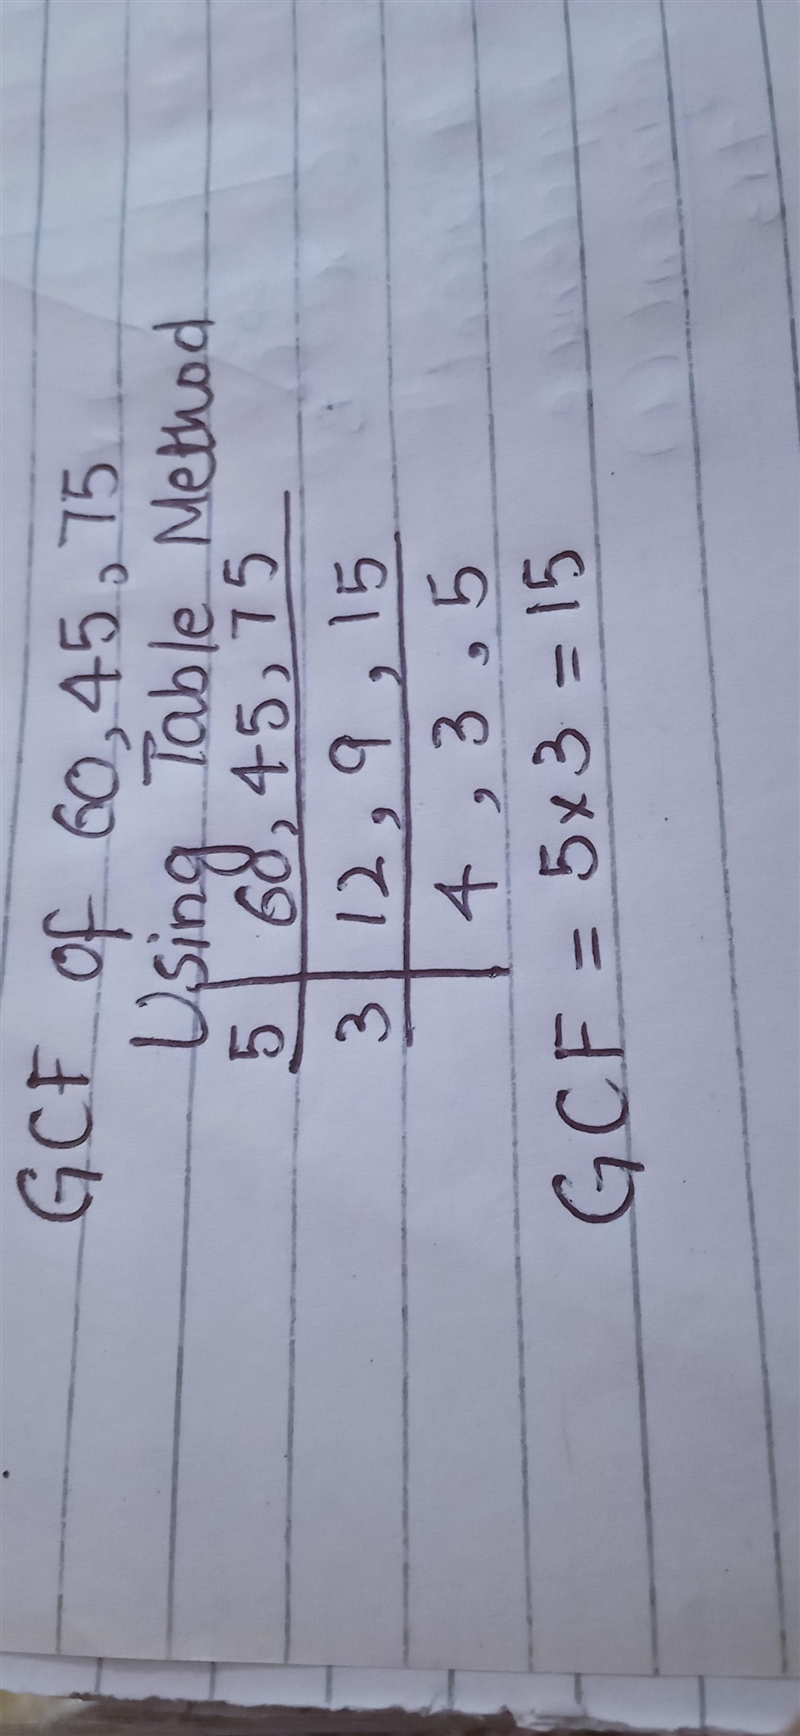 GCF of 60, 45, 75
Using Table Method
5 60, 45, 75
3 12, 9, 15
4, 3, 5
GCF = 5x3 = 15